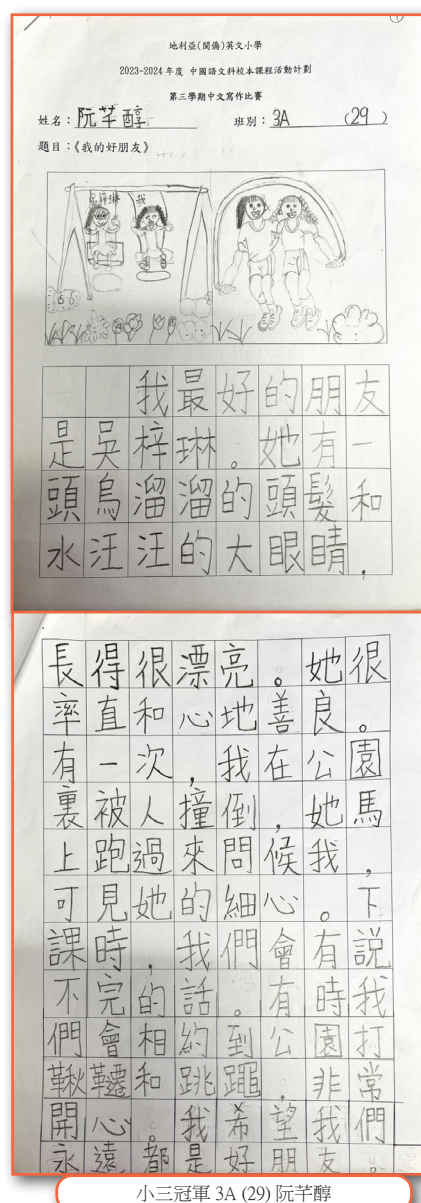 ①
地利亞(閩僑)英文小學
2023-2024 年度 中國語文科校本課程活動計劃
第三學期中文寫作比賽
姓名：阮芊醇 班別：3A (29)
題目：《我的好朋友》
吳梓琳 我
我最好的朋友
是吳梓琳。她有一
頭烏溜溜的頭髮和
水汪汪的大眼睛，
長得很漂亮。她很
率直和心地善良。
有一次，我在公園
裏被人撞倒，她馬
上跑過來問候我，
可見她的細心。下
課時，我們會有説
不完的話。有時我
們會相約到公園打
鞦韆和跳蹋，非常
開心。我希望我們
永遠都是好朋友。
小三冠軍 3A (29) 阮芊醇